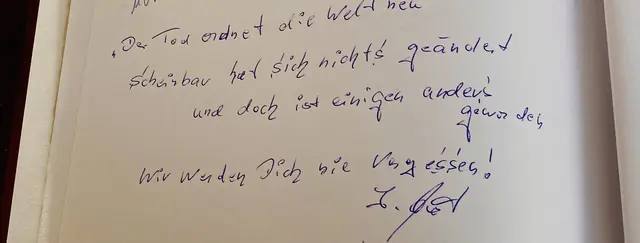 „Der Tod ordnet die Welt neu
scheinbar hat sich nichts geändert
und doch ist einigen anders
geworden
Wir werden Dich nie vergessen!